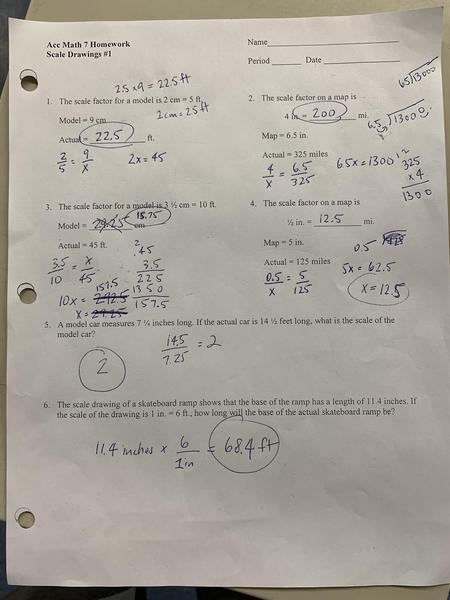 Acc Math 7 Homework
Scale Drawings #1
Name
Period Date
2.5 x 9 = 22.5 ft
1. The scale factor for a model is 2 cm = 5 ft.
1cm = 2.5 ft
Model = 9 cm
Actual = 22.5 ft.
2/5 = 9/x 2x = 45
2. The scale factor on a map is
4 in. = 200 mi.
Map = 6.5 in.
Actual = 325 miles
4/x = 6.5/325 6.5x = 1300
65)13000
6.5)1300.0
325
x 4
1300
3. The scale factor for a model is 3 ½ cm = 10 ft.
Model = 29.25 15.75 cm
Actual = 45 ft.
3.5/10 = x/45
10x = 292.5 157.5
x = 29.25
45
3.5
225
1350
157.5
4. The scale factor on a map is
½ in. = 12.5 mi.
Map = 5 in.
Actual = 125 miles
0.5
0.5/x = 5/125
5x = 62.5
x = 12.5
5. A model car measures 7 ¼ inches long. If the actual car is 14 ½ feet long, what is the scale of the
model car?
14.5/7.25 = 2
2
6. The scale drawing of a skateboard ramp shows that the base of the ramp has a length of 11.4 inches. If
the scale of the drawing is 1 in. = 6 ft., how long will the base of the actual skateboard ramp be?
11.4 inches x 6/1in = 68.4 ft